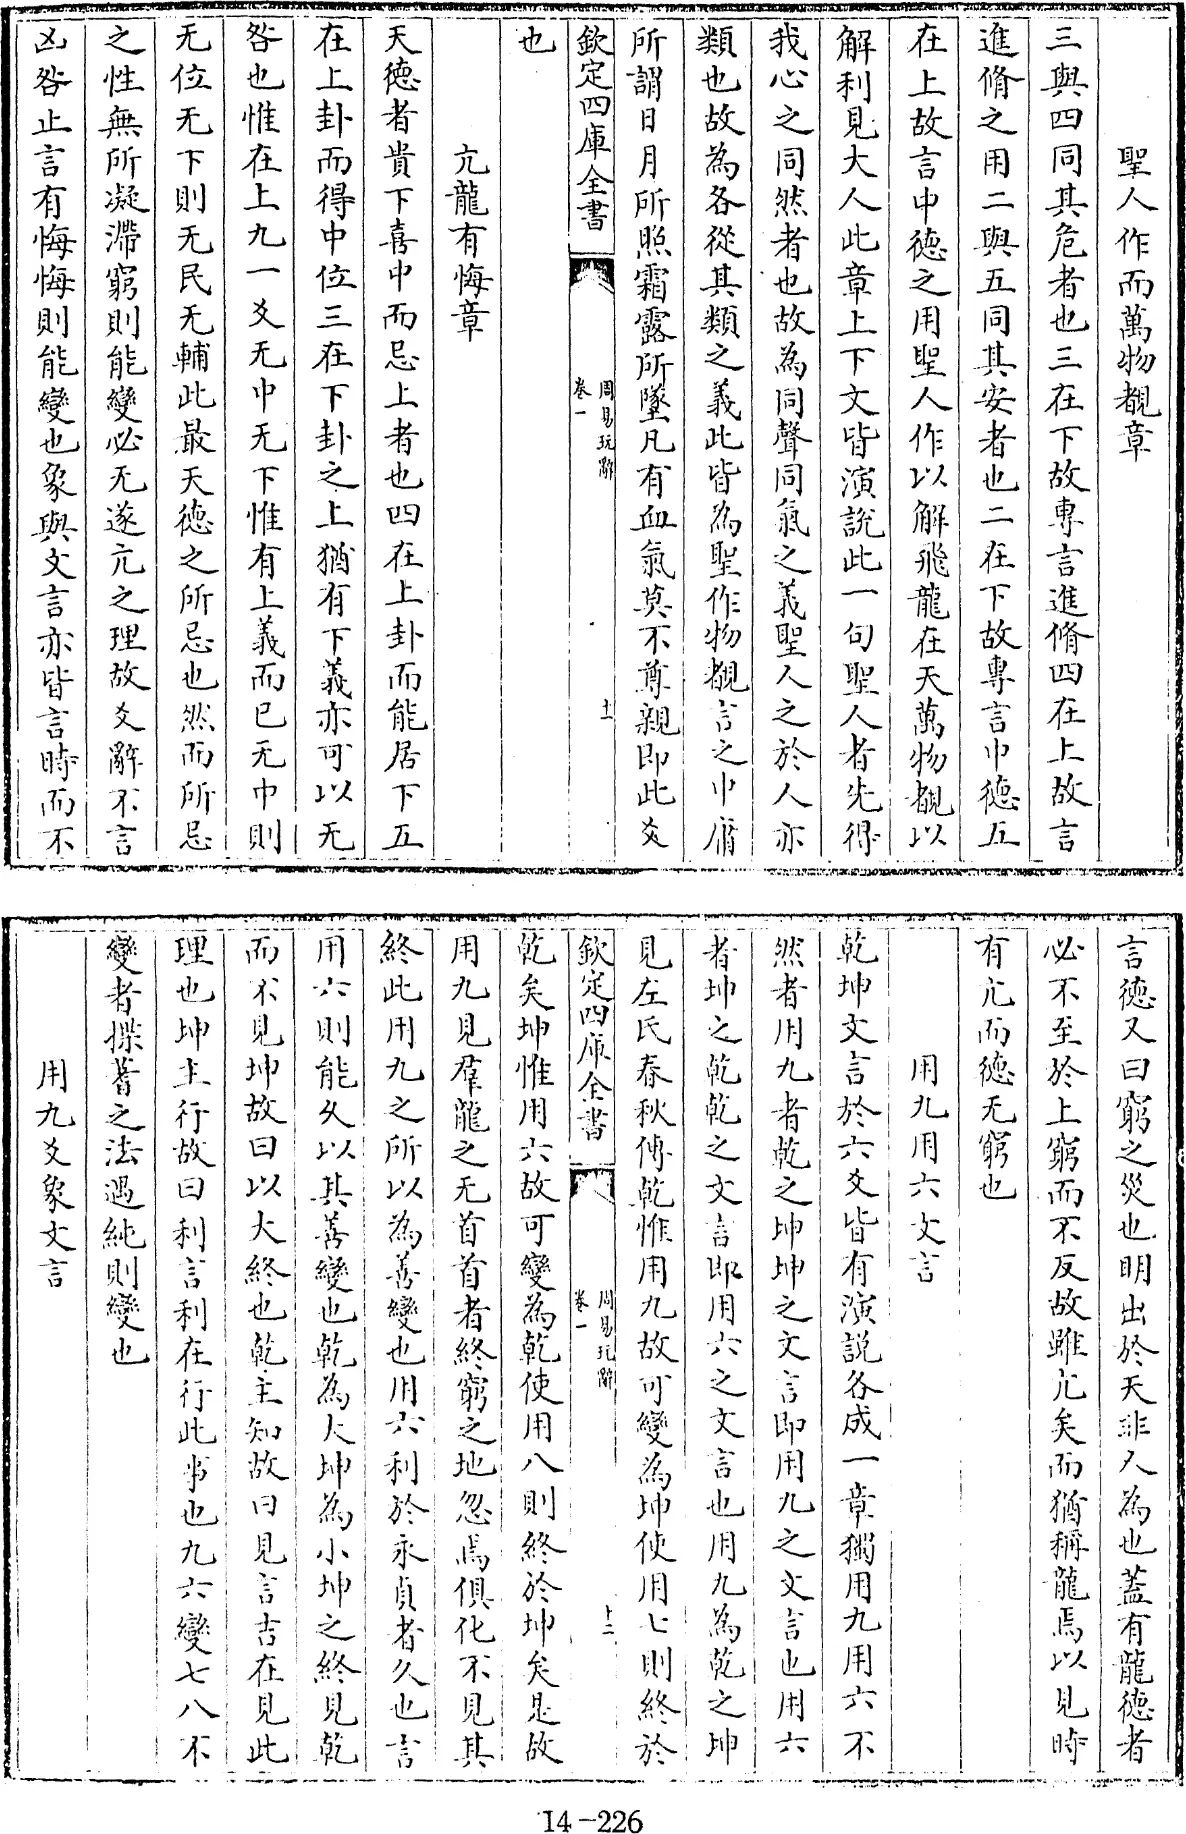 聖人作而萬物覩章
三與四同其危者也三在下故專言進脩四在上故言
進脩之用二與五同其安者也二在下故專言中德五
在上故言中德之用聖人作以解飛龍在天萬物覩以
解利見大人此章上下文皆演說此一句聖人者先得
我心之同然者也故為同聲同氣之義聖人之於人亦
類也故為各從其類之義此皆為聖作物覩言之中庸
所謂日月所照霜露所墜凡有血氣莫不尊親即此爻
欽定四庫全書
周易玩辭
卷一
十一
也
亢龍有悔章
天德者貴下喜中而忌上者也四在上卦而能居下五
在上卦而得中位三在下卦之上猶有下義亦可以无
咎也惟在上九一爻无中无下惟有上義而已无中則
无位无下則无民无輔此最天德之所忌也然而所忌
之性無所凝滯窮則能變必无遂亢之理故爻辭不言
凶咎止言有悔悔則能變也象與文言亦皆言時而不
言德又曰窮之災也明出於天非人為也蓋有龍德者
必不至於上窮而不反故雖亢矣而猶稱龍焉以見時
有亢而德无窮也
用九用六文言
乾坤文言於六爻皆有演說各成一章獨用九用六不
然者用九者乾之坤坤之文言即用九之文言也用六
者坤之乾乾之文言即用六之文言也用九為乾之坤
見左氏春秋傳乾惟用九故可變為坤使用七則終於
欽定四庫全書
周易玩辭
卷一
十二
乾矣坤惟用六故可變為乾使用八則終於坤矣是故
用九見羣龍之无首首者終窮之地忽焉俱化不見其
終此用九之所以為善變也用六利於永貞者久也言
用六則能久以其善變也乾為大坤為小坤之終見乾
而不見坤故曰以大終也乾主知故曰見言吉在見此
理也坤主行故曰利言利在行此事也九六變七八不
變者揲蓍之法遇純則變也
用九爻象文言
14-226